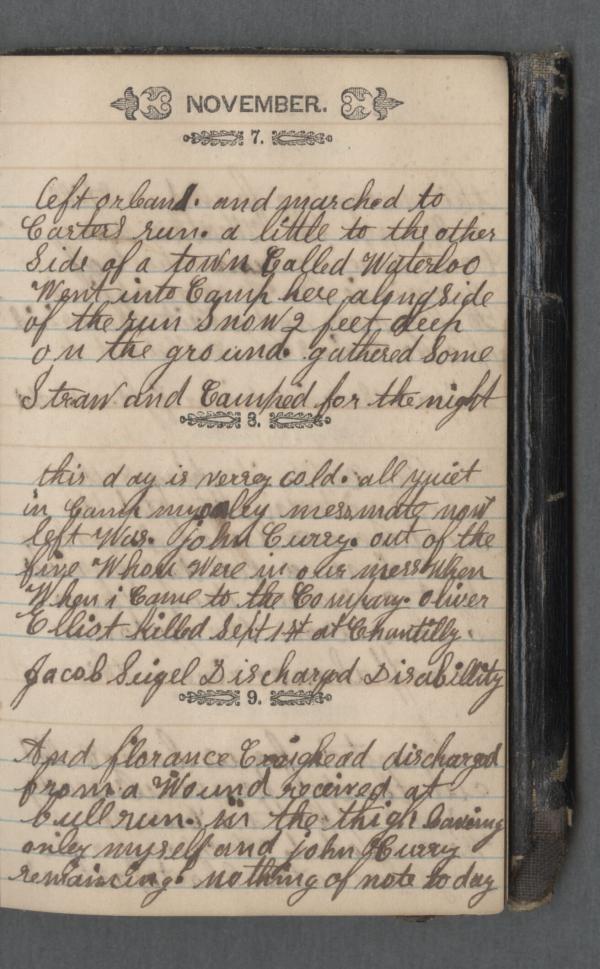 NOVEMBER.
7.
left orland. and marched to
Carters run. a little to the other
Side of a town Called Waterloo
Went into Camp here alongside
of the run Snow 2 feet deep
on the ground. gathered Some
Straw and Camped for the night
8.
this day is verrey cold. all quiet
in Camp my onley messmate now
left Was. john Curry. out of the
five Whom Were in our mess When
When i Came to the Company. oliver
Elliot killed Sept 1st at Chantilly.
Jacob Seigel Discharged Disabillity
9.
And florance Craighead discharged
from a Wound received at
bull run. in the thigh leaving
onley myself and john Curry
remaining. nothing of note to day